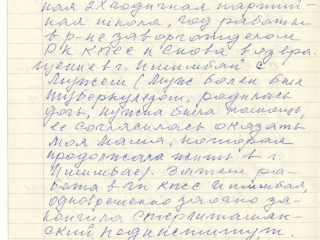 ная 2х годичная партий-
ная школа, год работы
в р-не зав орготделом
РК КПСС и снова возвра-
щение в г. Ишимбай с
мужем (муж болен был
туберкулезом, родилась
дочь, нужна была помощь,
ее согласилась оказать
моя мама, которая
продолжала жить в г.
Ишимбае). Затем ра-
бота в ГК КПСС Ишимбая,
одновременно заочно за-
кончила Стерлитамак-
ский пединститут.